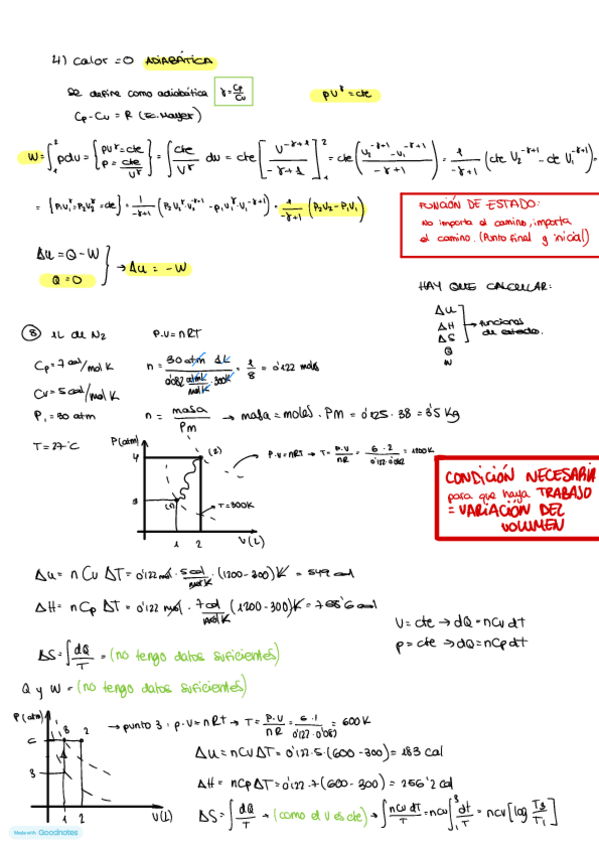 4) calor = 0 ADIABÁTICA
Se define como adiabática γ = Cp/Cv
pVᵞ = cte
Cp - Cv = R (Ec. Mayer)
W = ∫₁² pdv = { pVᵞ = cte / p = cte/Vᵞ } = ∫ cte/Vᵞ dv = cte [ V^(-γ+1) / (-γ+1) ]₁² = cte ( (V₂^(-γ+1) - V₁^(-γ+1)) / (-γ+1) ) = 1/(-γ+1) (cte V₂^(-γ+1) - cte V₁^(-γ+1)) =
= { P₁V₁ᵞ = P₂V₂ᵞ = cte } = 1/(-γ+1) (P₂V₂ᵞ · V₂^(-γ+1) - P₁V₁ᵞ · V₁^(-γ+1)) = 1/(-γ+1) (P₂V₂ - P₁V₁)
FUNCIÓN DE ESTADO:
No importa el camino, importa
el camino. (Punto final y inicial)
Δu = Q - W
Q = 0
→ Δu = - W
HAY QUE CALCULAR:
Δu
ΔH
ΔS
→ funciones
de estado.
Q
W
8 1L de N₂ P.V = nRT
Cp = 7 cal/mol K n = 30 atm 1L / 0'082 atm L/mol K · 300K = 1/8 = 0'122 mols
Cv = 5 cal/mol K
P₁ = 30 atm n = masa/Pm → masa = moles · PM = 0'125 · 38 = 3'5 kg
T = 27°C
P(atm)
(2)
(1)
T = 300K
1 2 V(L)
P.V = nRT → T = P.V/nR = 6 · 2/0'122·0'082 = 1200K
CONDICIÓN NECESARIA
para que haya TRABAJO
= VARIACIÓN DEL
VOLUMEN
Δu = n Cv ΔT = 0'122 mol · 5 cal/mol K · (1200 - 300) K = 549 cal
ΔH = n Cp ΔT = 0'122 mol · 7 cal/mol K (1200 - 300) K = 768'6 cal
V = cte → dQ = nCv dT
P = cte → dQ = nCp dT
ΔS = ∫ dQ/T = (no tengo datos suficientes)
Q y W = (no tengo datos suficientes)
P(atm)
3 2
6
3
1 2 V(L)
→ punto 3: P.V = nRT → T = P.V/nR = 6 · 1/0'122·0'082 = 600K
Δu = nCvΔT = 0'122 · 5 · (600 - 300) = 183 cal
ΔH = nCpΔT = 0'122 · 7 (600 - 300) = 256'2 cal
ΔS = ∫ dQ/T → (como el V es cte) → ∫ nCv dT/T = nCv ∫₁³ dT/T = nCv [log T3/T1]
Made with Goodnotes